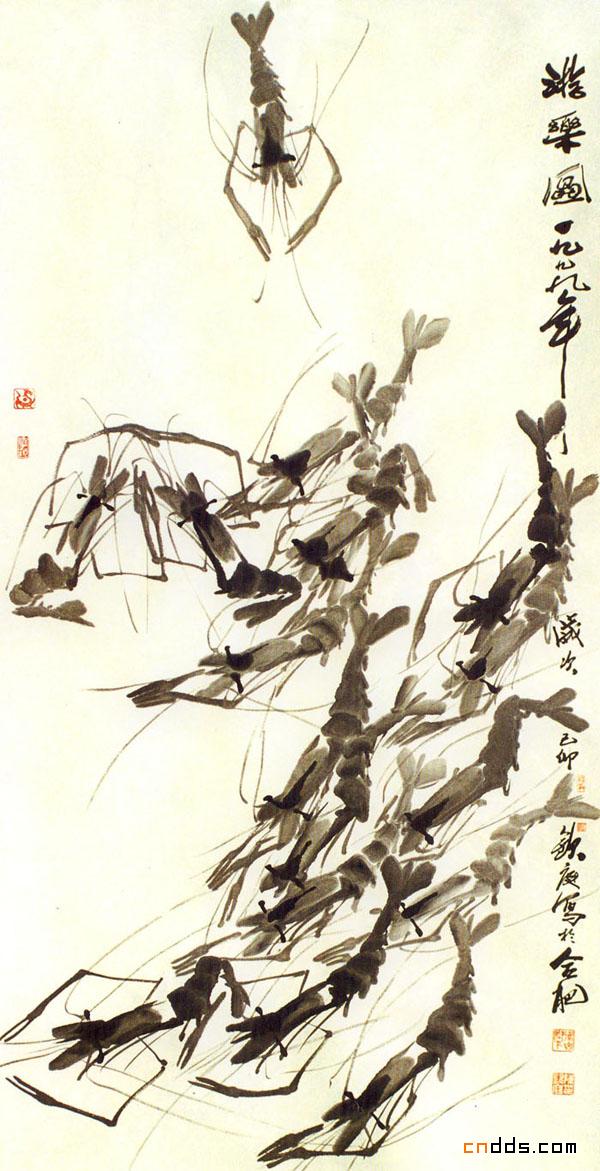 游樂圖一九九九年歲次己卯庭寫於合肥
cndds.com